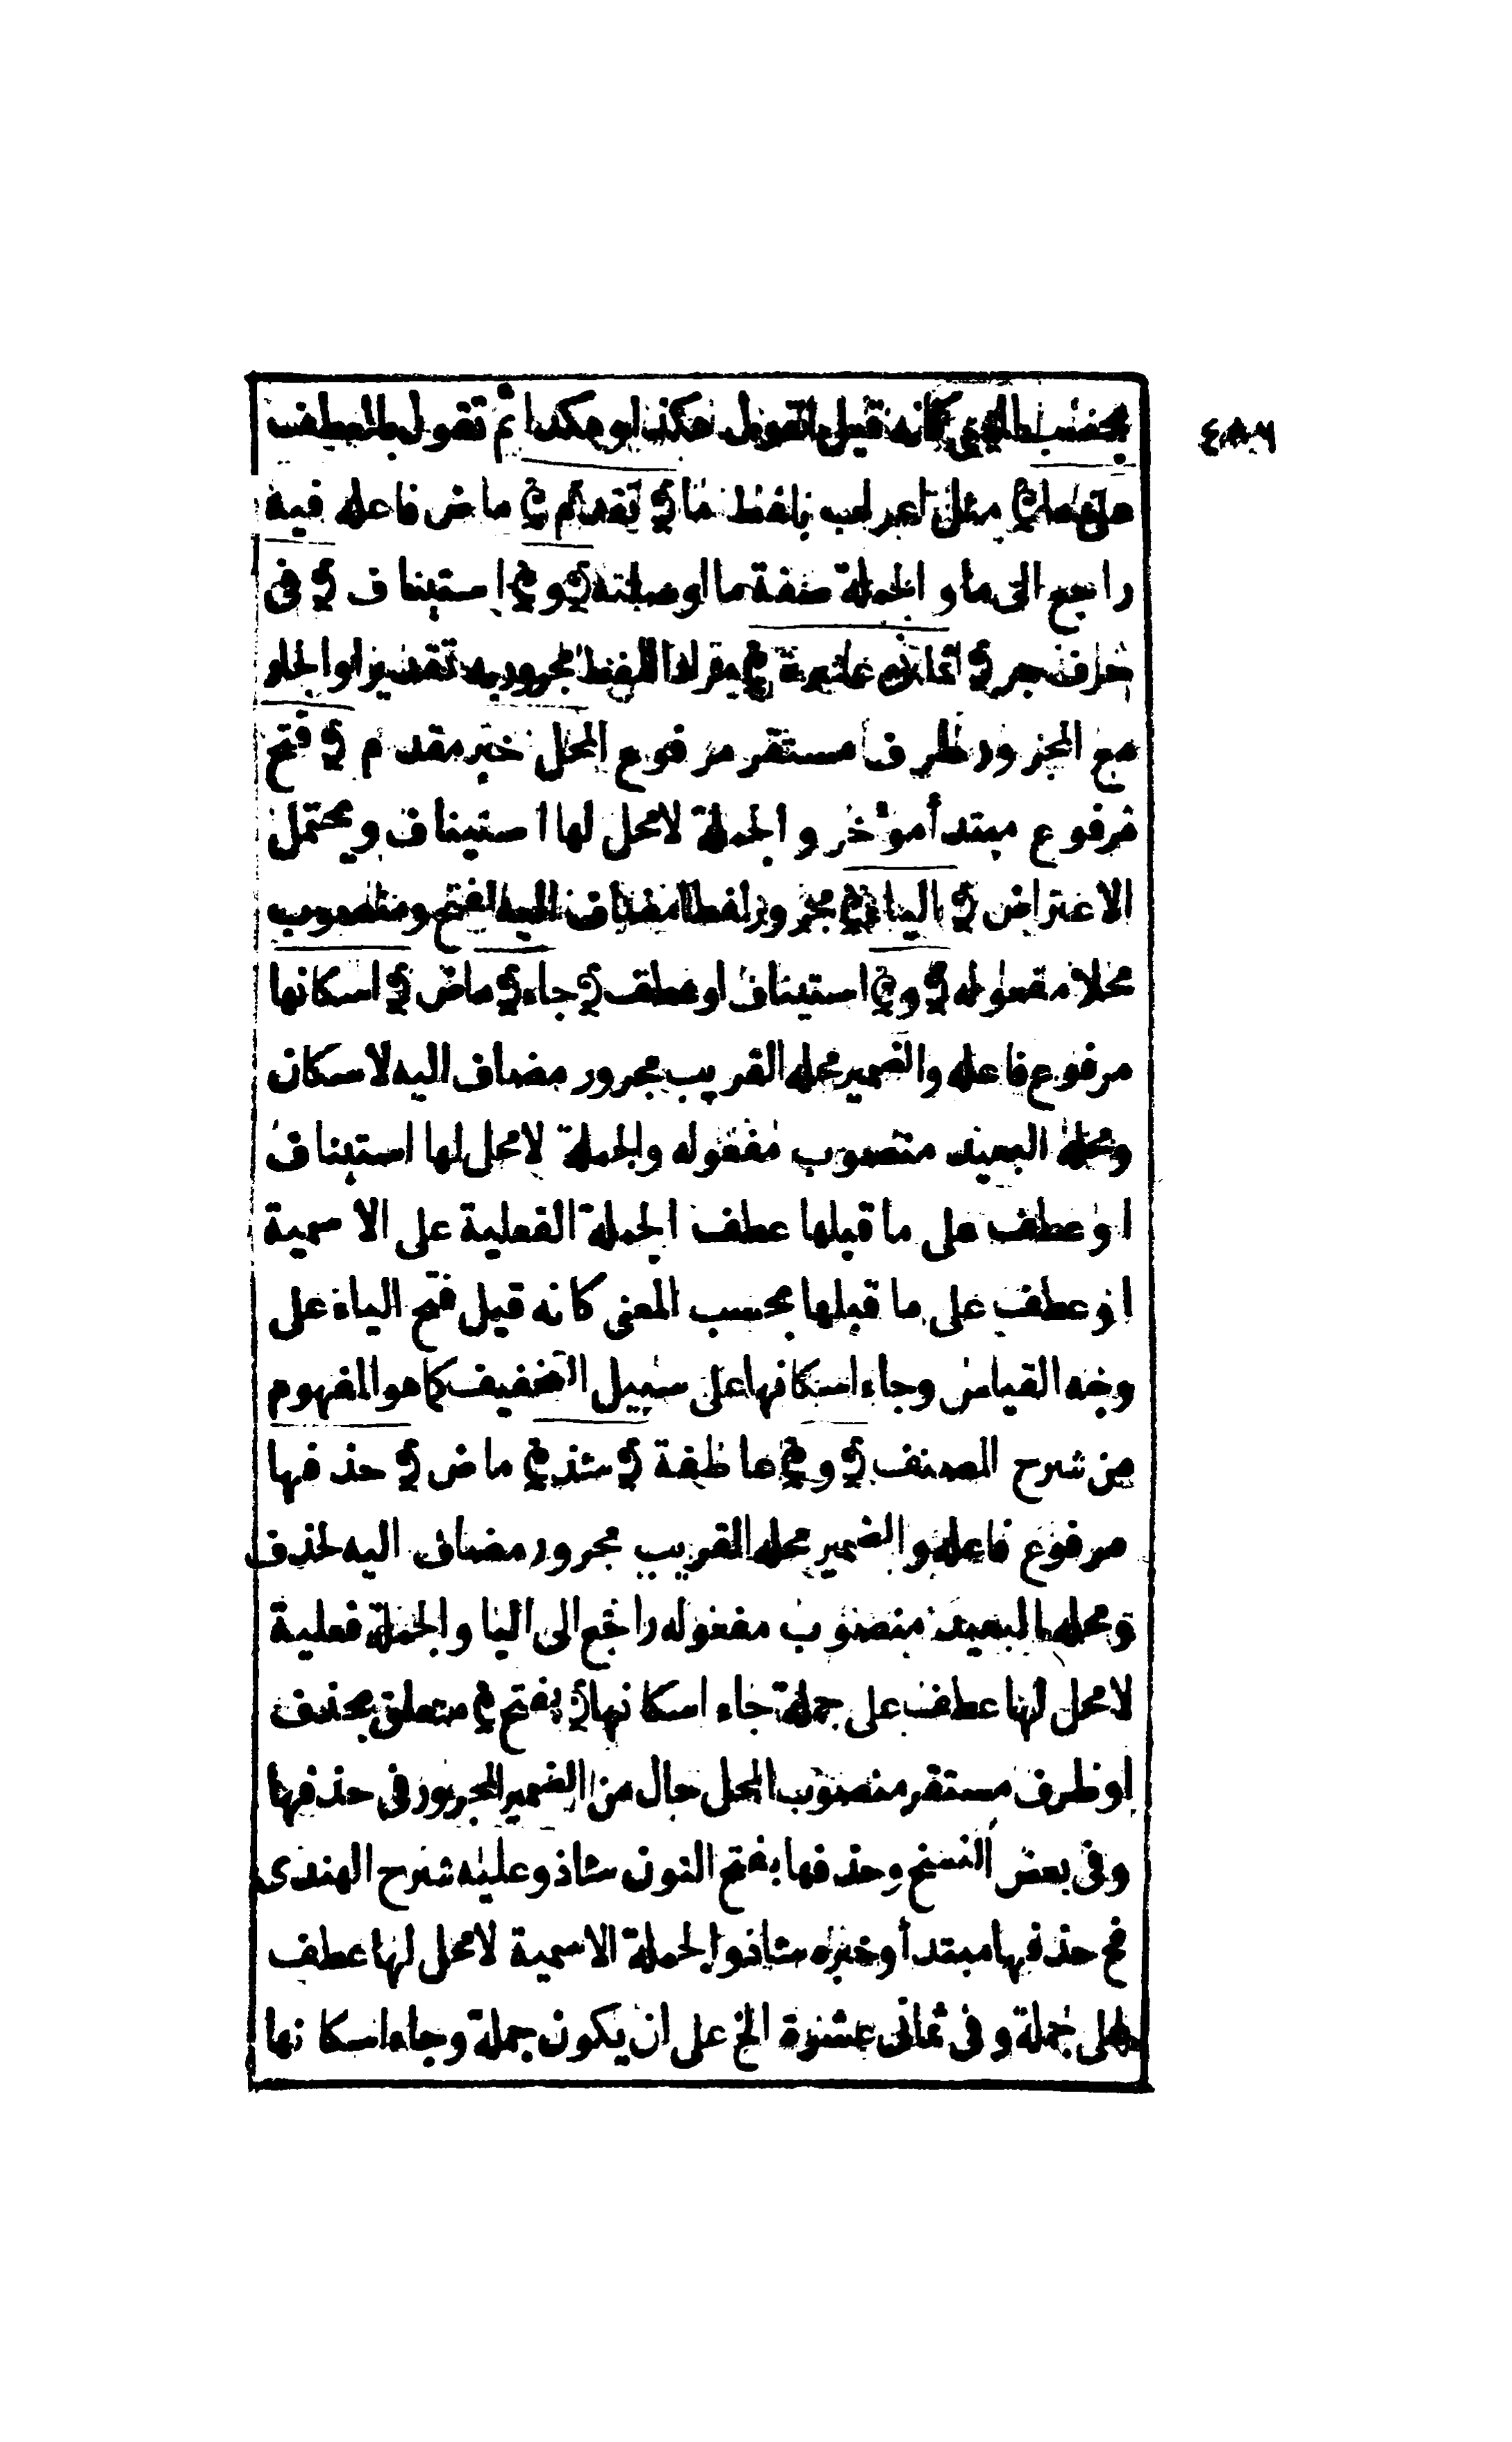 ٤٨٦
بحسب المعنى كانه قيل تقول هكذا وهكذا ثم تقول بالعطف
على ما ﴿ مثل اعراب ﴾ ما ﴿ تقدم ﴾ ماض فاعله فيه
راجع الى ما والجملة صفة ما اوصلته ﴿ و ﴾ استيناف ﴿ فى
حرف جر ﴿ ثمانى عشرة ﴾ مراد اللفظ مجرور به تقديرا والجار
مع المجرور ظرف مستقر مرفوع المحل خبر مقدم ﴿ فتح
مرفوع مبتدأ مؤخر والجملة لا محل لها استيناف ويحتمل
الاعتراض ﴿ الياء ﴾ مجرور لفظا مضاف اليه لفتح ومنصوب
محلا مفعوله ﴿ و ﴾ استيناف اوعطف ﴿ جاء ﴾ ماض ﴿ اسكانها
مرفوع فاعله والضمير محله القريب مجرور مضاف اليه لاسكان
ومحله البعيد منصوب مفعوله والجملة لا محل لها استيناف
او عطف على ما قبلها عطف الجملة الفعلية على الاسمية
او عطف على ما قبلها بحسب المعنى كانه قيل فتح الياء على
وجه القياس وجاء اسكانها على سبيل التخفيف كما هو المفهوم
من شرح المصنف ﴿ و ﴾ عاطفة ﴿ شذ ﴾ ماض ﴿ حذفها
مرفوع فاعله والضمير محله القريب مجرور مضاف اليه لحذف
ومحله البعيد منصوب مفعوله راجع الى اليا والجملة فعلية
لا محل لها عطف على جملة جاء اسكانها ﴿ بفتح ﴾ متعلق بحذف
او ظرف مستقر منصوب المحل حال من الضمير المجرور فى حذفها
وفى بعض النسخ وحذفها بفتح النون شاذ وعليه شرح الهندى
فح حذفها مبتدأ وخبره شاذ والجملة الاسمية لا محل لها عطف
على جملة وفى ثمانى عشرة الخ على ان يكون جملة وجاء اسكانها